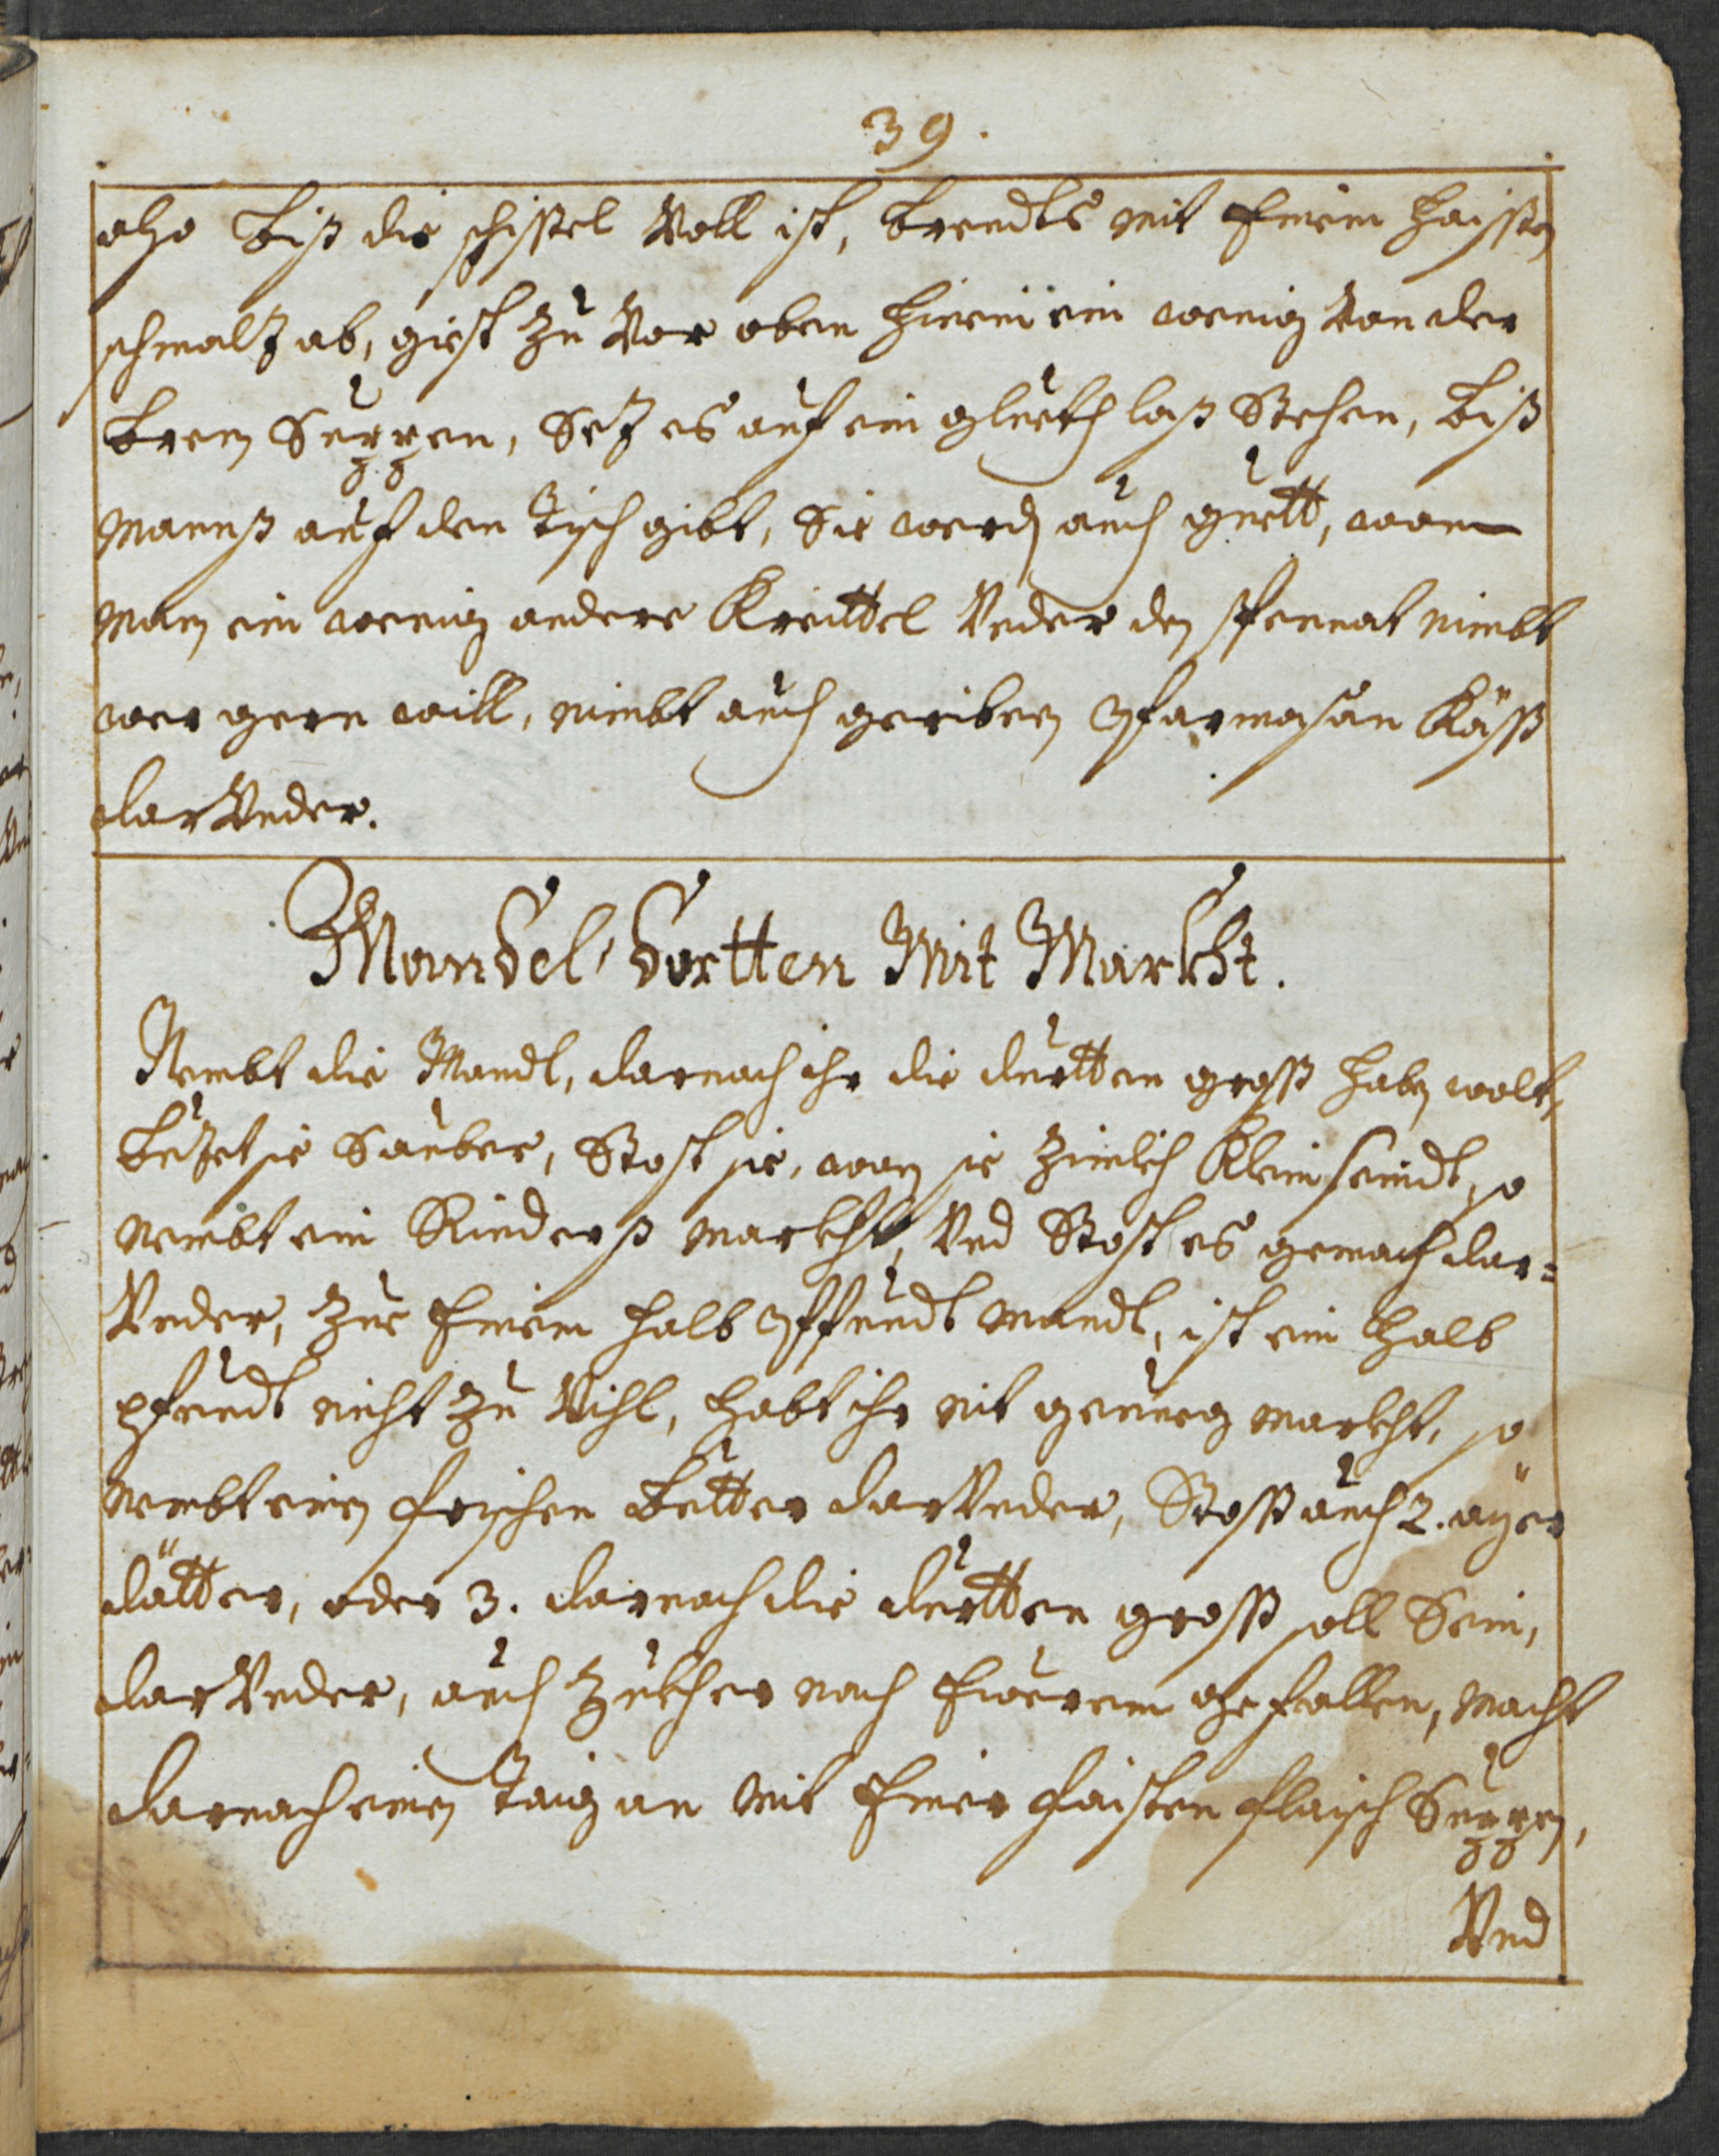 39.
also biß die schissel Voll ist, brendts mit Einem haissen
schmaltz ab, giest zu Vor oben hinein ein wenig Von der
brein Suppen, Setz es auf ein glueth laß Stehen, biß
manß auf den Tisch gibt, Sie werden auch guett, wann
man ein wenig andere Kreittel Vnder den spenat nimbt
wer gern will, nimbt auch geriben Pfarmasan Käß
darVnder.
Mandel Dortten Mit Markht.
Nembt die Mandl, darnach ihr die durtten groß haben wolt,
butzet sie Sauber, Stost sie, wan sie zimlich Klein seindt, so
nembt ein Rinderß markht, Vnd Stost es gemach dar=
Vnder, zue Einem halb Pffundt mandl, ist ein halb
pfundt nicht zu Vihl, habt ihr nit genueg markht, so
nembt einen frischen butter darVnder, Stost auch 2. ayer
dätter, oder 3. darnach die durtten groß soll Sein,
darVnder, auch zukher nach Eurem gefallen, macht
darnach einen Taig an mit Einer faisten flaisch Suppen,
Vnd